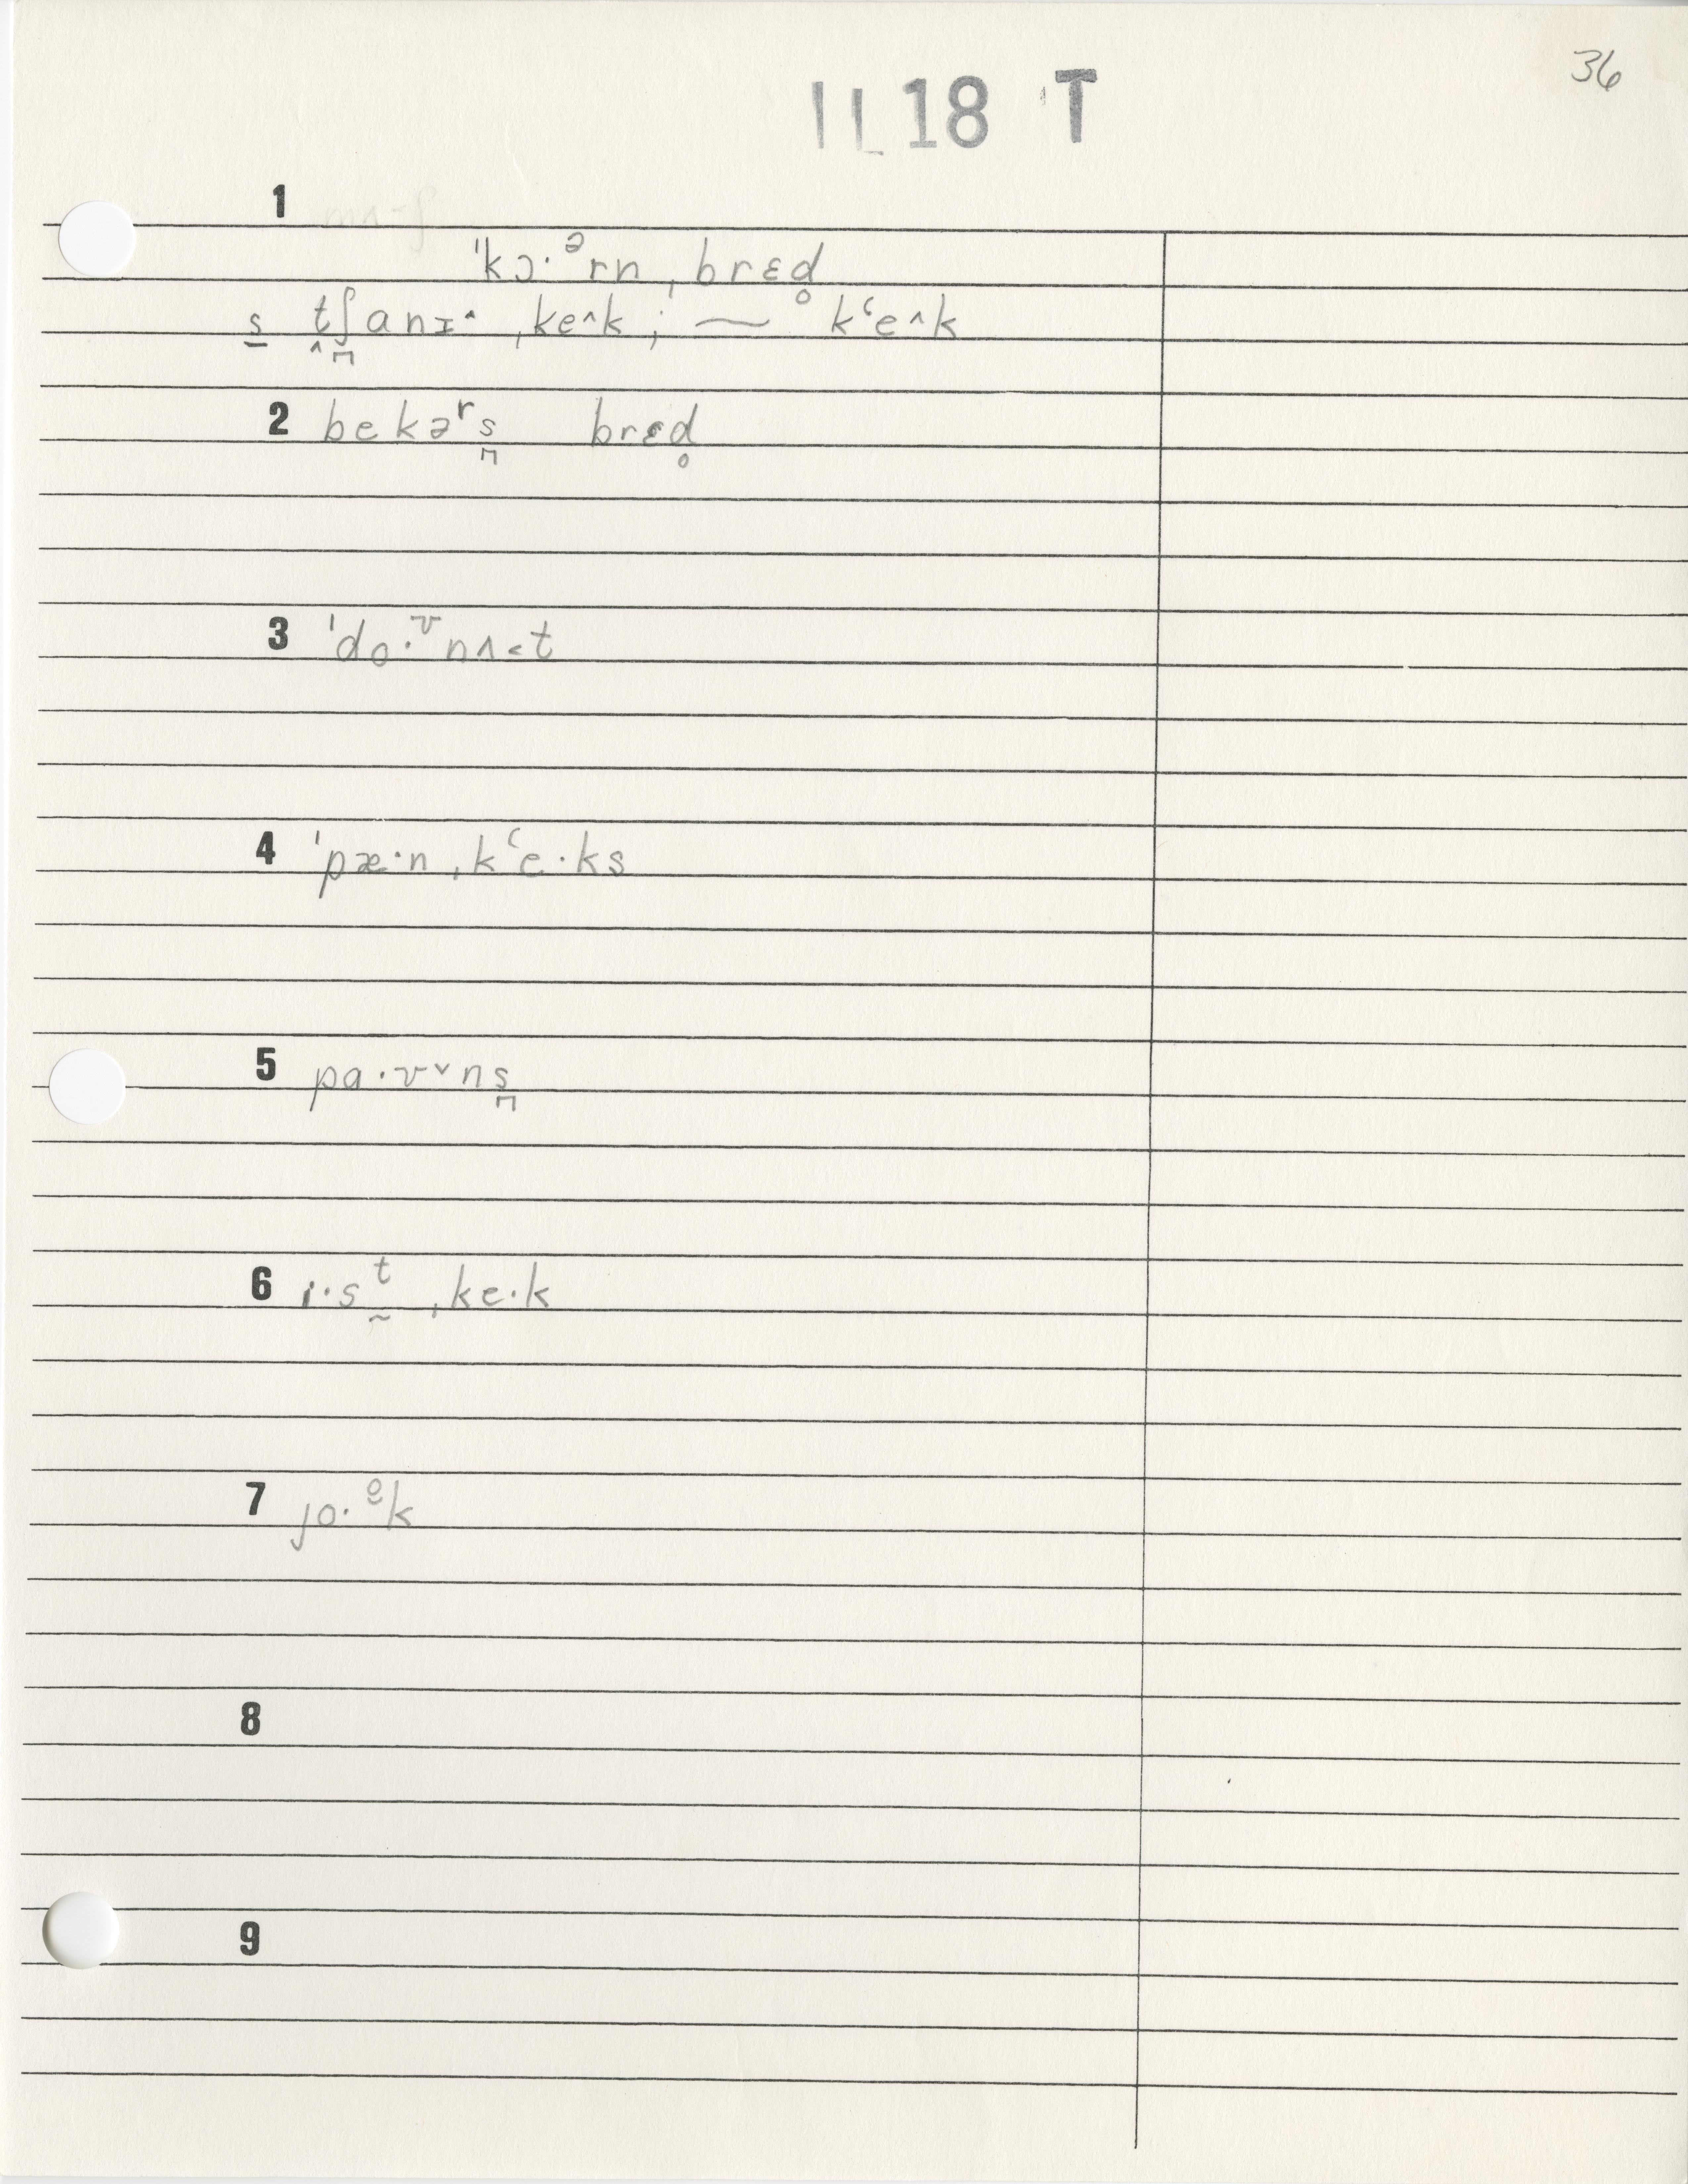 36
IL 18 T
1
ˈkɔ·ᵊrn ˌbrɛd̥
s̲ t̬ʃanɪ^ ˌke^k; ~ kʻe^k
2 bekəʳs̺ brɛd̥
3 ˈdo·ᶷnʌ˂t
4 ˈpæ·n ˌkʻe·ks
5 pa·ʊˇns̺
6 i·sᵗ̰ ˌke·k
7 jo·ᵒ̯k
8
9